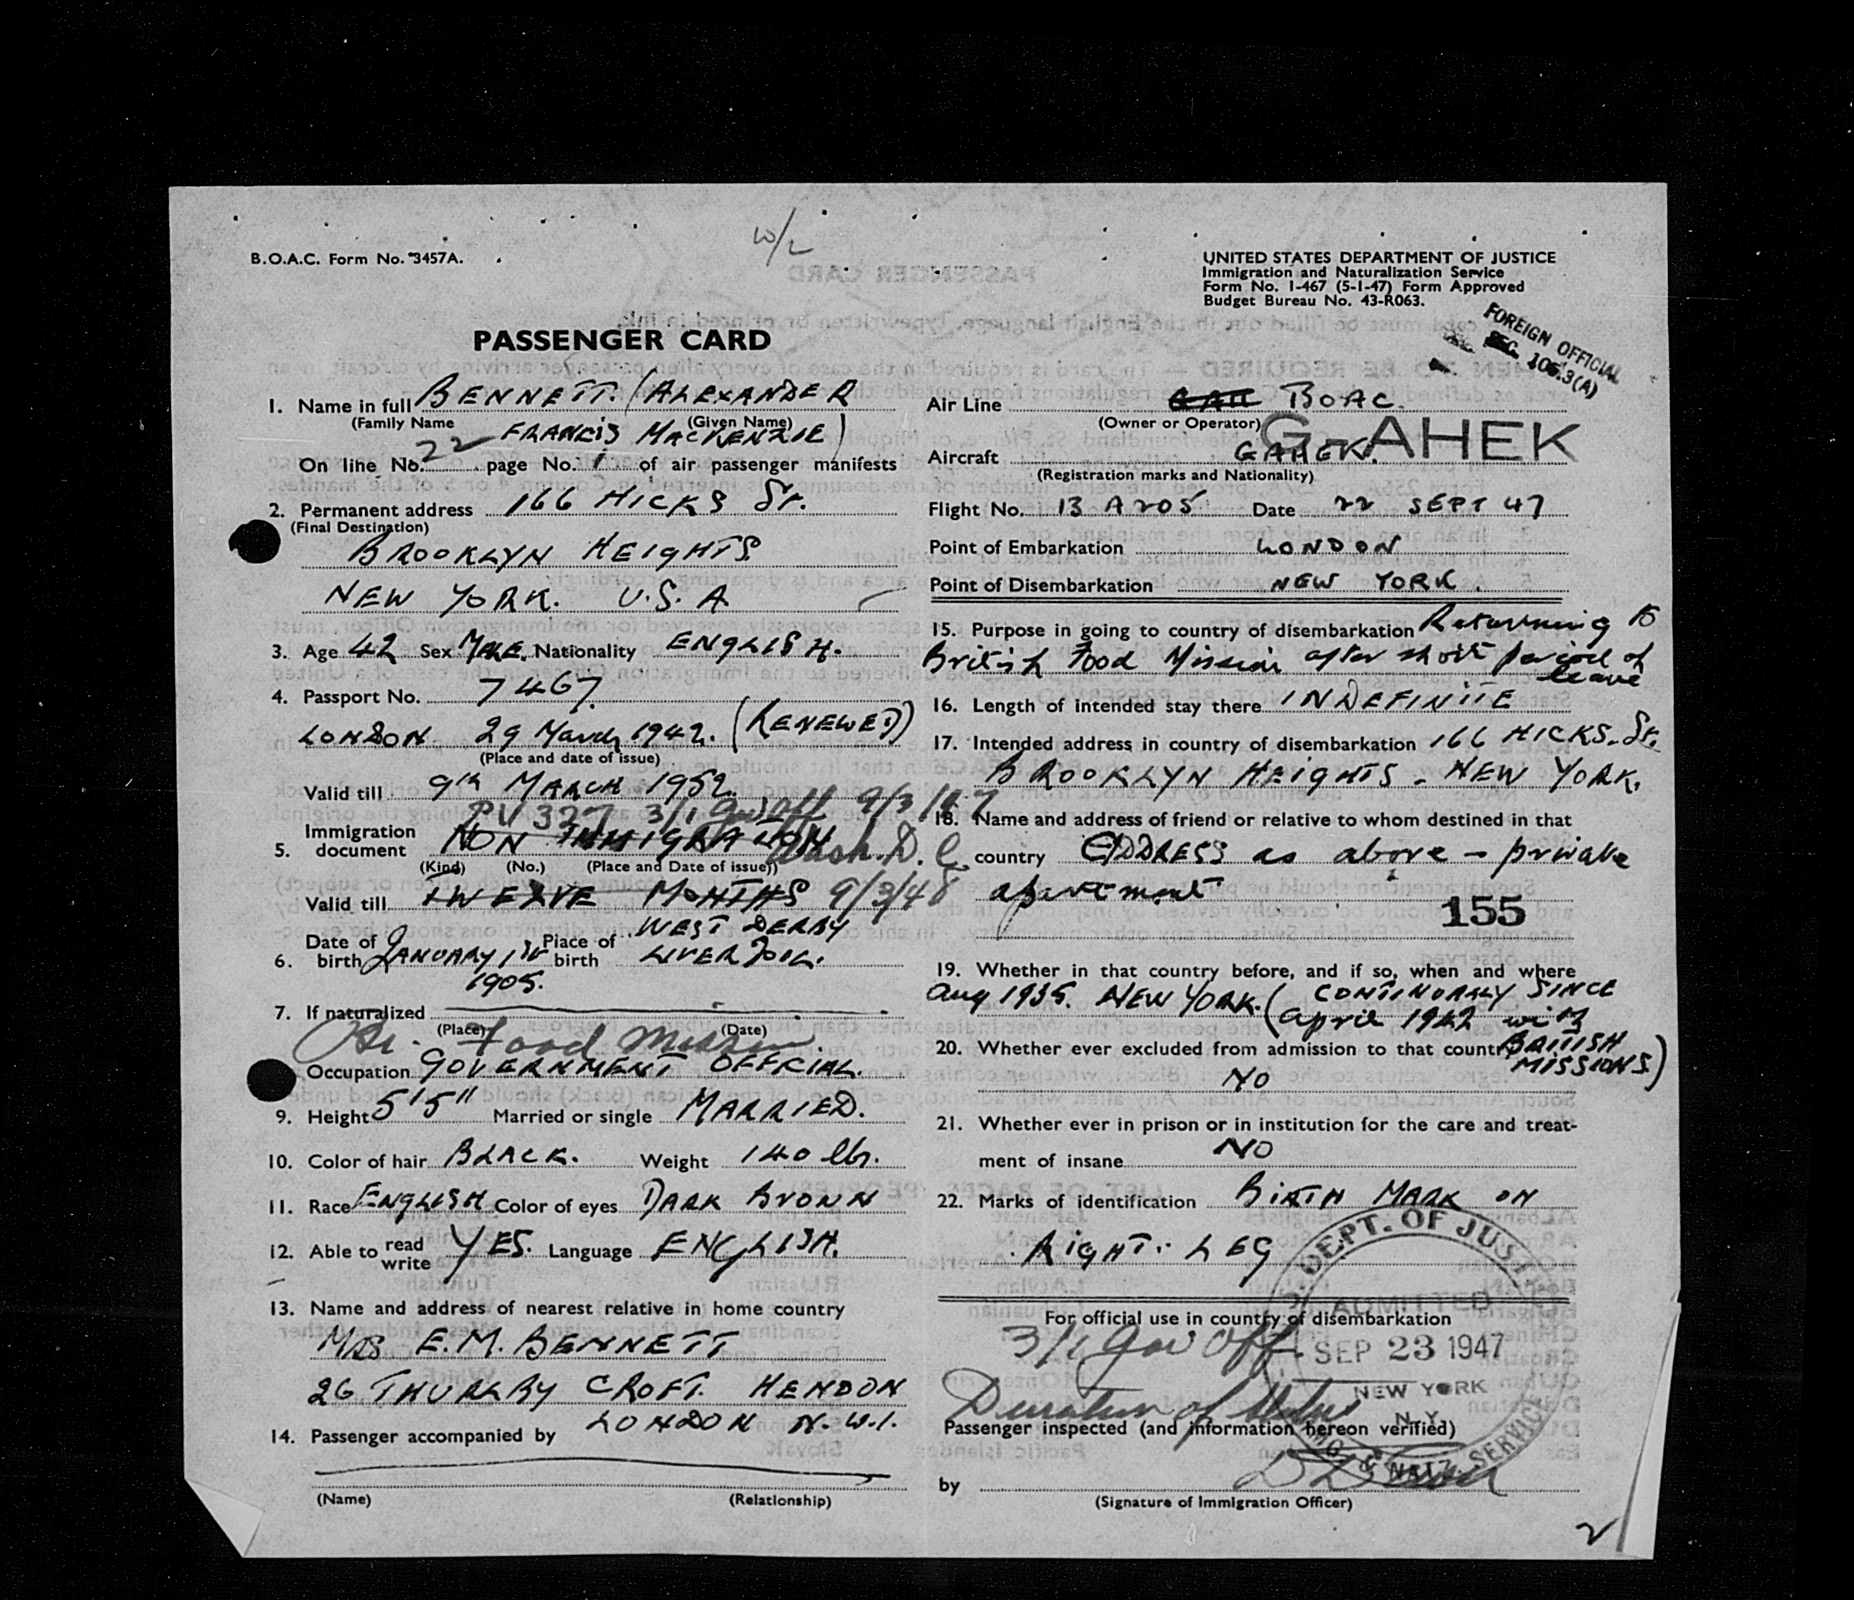 W/L
B.O.A.C. Form No. 3457A.
UNITED STATES DEPARTMENT OF JUSTICE
Immigration and Naturalization Service
Form No. I-467 (5-1-47) Form Approved
Budget Bureau No. 43-R063.
FOREIGN OFFICIAL
SEC. 105.3(A)
PASSENGER CARD
1. Name in full BENNETT. (ALEXANDER
(Family Name (Given Name)
FRANCIS MACKENZIE)
On line No. 22 page No. 1 of air passenger manifests
2. Permanent address 166 HICKS St.
(Final Destination)
BROOKLYN HEIGHTS
NEW YORK. U.S.A
3. Age 42 Sex MALE. Nationality ENGLISH.
4. Passport No. 7467.
LONDON 29 March 1942. (RENEWED)
(Place and date of issue)
Valid till 9th MARCH 1952.
PV 327 3/1 Gov Off 9/3/47
5. Immigration document NON IMMIGRATION Wash. D.C.
(Kind) (No.) (Place and Date of issue))
Valid till TWELVE MONTHS 9/3/48
6. Date of birth JANUARY 1st 1905. Place of birth WEST DERBY LIVERPOOL.
7. If naturalized
(Place) (Date)
Br. Food Mission.
Occupation GOVERNMENT OFFICIAL.
9. Height 5'5" Married or single MARRIED.
10. Color of hair BLACK. Weight 140 lbs.
11. Race ENGLISH Color of eyes DARK BROWN
12. Able to read write YES. Language ENGLISH.
13. Name and address of nearest relative in home country
MRS E.M. BENNETT
26 THURLBY CROFT. HENDON
LONDON N.W.1.
14. Passenger accompanied by
(Name) (Relationship)
Air Line BOAC.
(Owner or Operator)
G-AHEK
Aircraft GAHEK.
(Registration marks and Nationality)
Flight No. 13 A 205 Date 22 SEPT 47
Point of Embarkation LONDON
Point of Disembarkation NEW YORK.
15. Purpose in going to country of disembarkation Returning to
British Food Mission after short period of
leave
16. Length of intended stay there INDEFINITE
17. Intended address in country of disembarkation 166 HICKS. St.
BROOKLYN HEIGHTS - NEW YORK.
18. Name and address of friend or relative to whom destined in that
country ADDRESS as above - private
apartment
155
19. Whether in that country before, and if so, when and where
Aug 1935. NEW YORK. (CONTINUALLY SINCE
April 1942 with
BRITISH
MISSIONS.)
20. Whether ever excluded from admission to that country
NO
21. Whether ever in prison or in institution for the care and treat-
ment of insane NO
22. Marks of identification BIRTH MARK ON
RIGHT. LEG
DEPT. OF JUSTICE
ADMITTED
For official use in country of disembarkation
3/1 Gov Off.
SEP 23 1947
NEW YORK
N.Y.
Duration of Status
Passenger inspected (and information hereon verified)
IMMIG. & NATZ. SERVICE
by
(Signature of Immigration Officer)
2